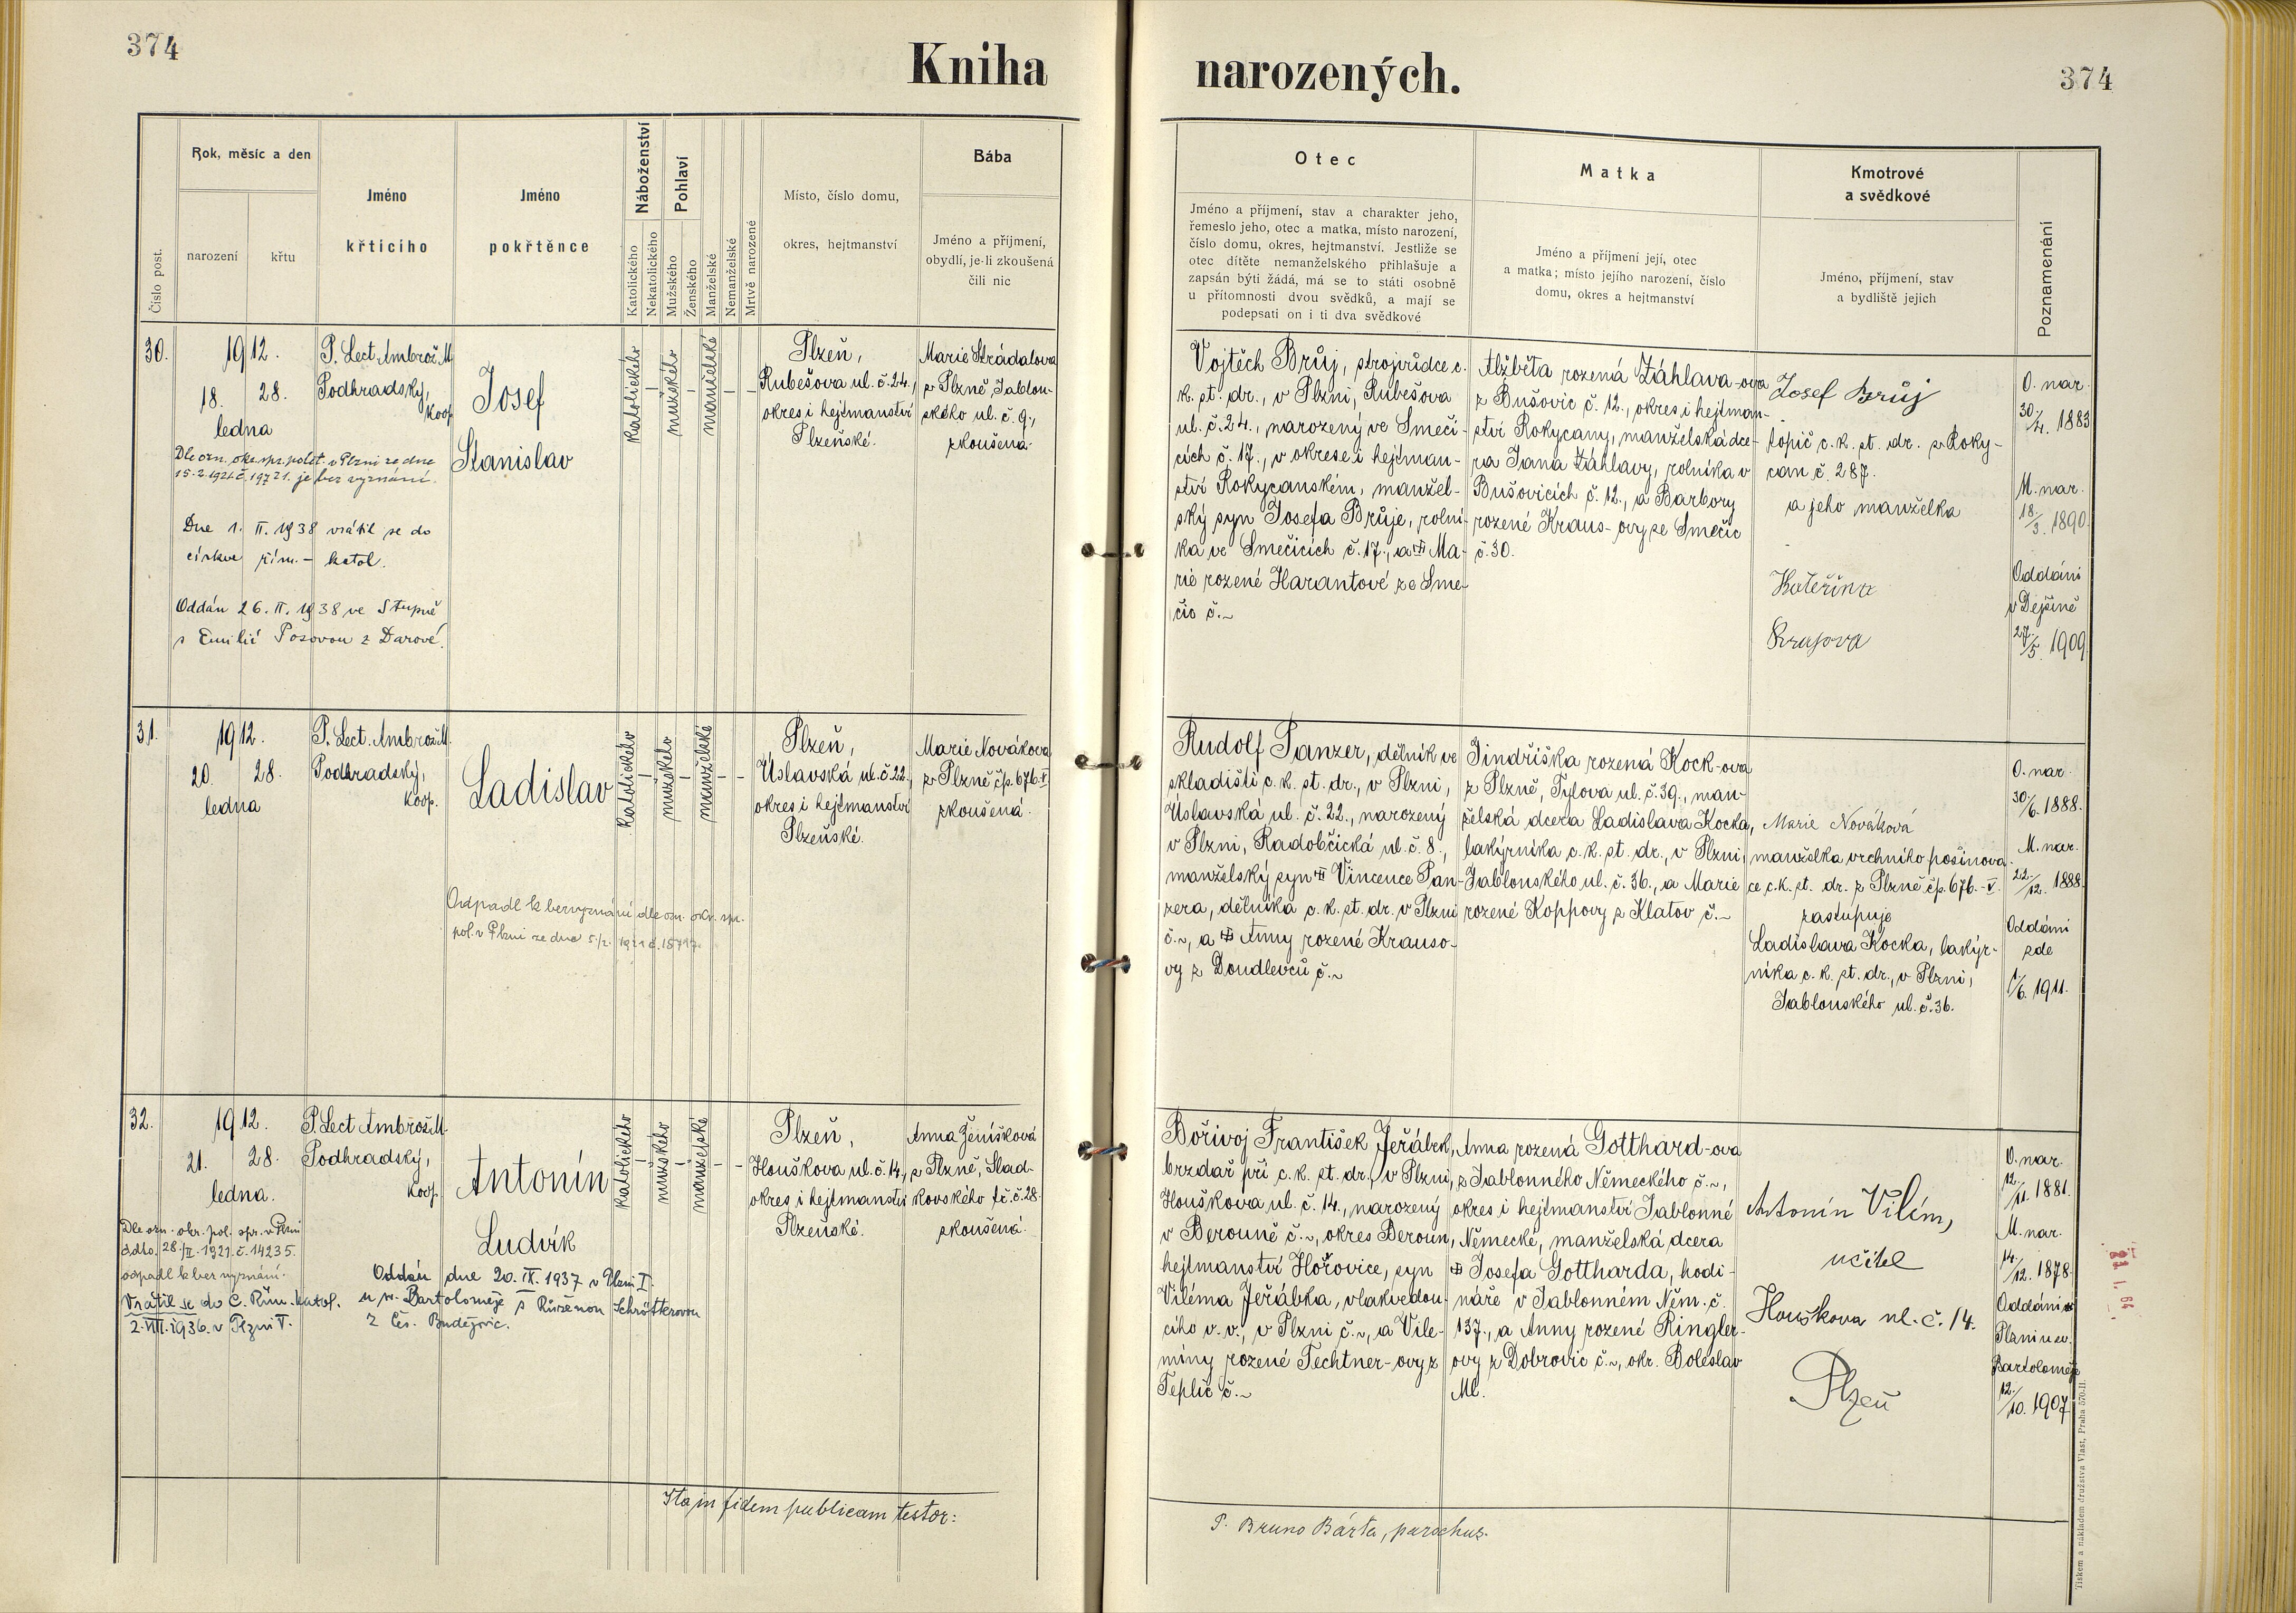 374
Kniha narozených.
374
Číslo post.
Rok, měsíc a den
narození
křtu
Jméno
křtícího
Jméno
pokřtěnce
Náboženství
Katolického
Nekatolického
Pohlaví
Mužského
Ženského
Manželské
Nemanželské
Mrtvě narozené
Místo, číslo domu,
okres, hejtmanství
Bába
Jméno a příjmení,
obydlí, je-li zkoušená
čili nic
Otec
Jméno a příjmení, stav a charakter jeho,
řemeslo jeho, otec a matka, místo narození,
číslo domu, okres, hejtmanství. Jestliže se
otec dítěte nemanželského přihlašuje a
zapsán býti žádá, má se to státi osobně
u přítomnosti dvou svědků, a mají se
podepsati on i ti dva svědkové
Matka
Jméno a příjmení její, otec
a matka; místo jejího narození, číslo
domu, okres a hejtmanství
Kmotrové
a svědkové
Jméno, příjmení, stav
a bydliště jejich
Poznamenání
30.
1912.
18. 28.
ledna
P. Lect. Ambrož M.
Podhradský,
koop.
Josef
Stanislav
katolického
mužského
manželské
Plzeň,
Rubešova ul. č. 24.,
okres i hejtmanství
Plzeňské.
Marie Strádalova
z Plzně, Jablon-
ského ul. č. 9.,
zkoušená.
Dle ozn. okr. spr. polit. v Plzni ze dne
15.2.1921 č. 19721. je bez vyznání.
Dne 1. II. 1938 vrátil se do
církve řím.- katol.
Oddán 26. II. 1938 ve Stupně
s Emilií Posovou z Darové.
Vojtěch Brůj, strojvůdce c.
k. st. dr., v Plzni, Rubešova
ul. č. 24., narozený ve Smeči-
cích č. 17., v okrese i hejtman-
ství Rokycanském, manžel-
ský syn Josefa Brůje, rolní-
ka ve Smečicích č. 17., a Ma-
rie rozené Harantové ze Sme-
čic č.~
Alžběta rozená Záhlava-ova
z Bušovic č. 12., okres i hejtman-
ství Rokycany, manželská dce-
ra Jana Záhlavy, rolníka v
Bušovicích č. 12., a Barbory
rozené Kraus-ovy ze Smečic
č. 30.
Josef Brůj
topič c. k. st. dr. z Roky-
can č. 287.
a jeho manželka
Kateřina
Brujova
O. nar.
30./4. 1883
M. nar.
18./3. 1890.
Oddáni
v Dejšině
27./5. 1909
31.
1912.
20. 28.
ledna
P. Lect. Ambrož M.
Podhradský,
koop.
Ladislav
katolického
mužského
manželské
Plzeň,
Úslavská ul. č. 22.,
okres i hejtmanství
Plzeňské.
Marie Nováková
z Plzně čp. 676.-V.
zkoušená.
Odpadl k bezvyznání dle ozn. okr. spr.
pol. v Plzni ze dne 5./2. 1921 č. 18717.
Rudolf Panzer, dělník ve
skladišti c. k. st. dr., v Plzni,
Úslavská ul. č. 22., narozený
v Plzni, Radobčická ul. č. 8.,
manželský syn Vincence Pan-
zera, dělníka c. k. st. dr. v Plzni
č.~, a Anny rozené Krauso-
vy z Doudlevců č.~
Jindřiška rozená Kock-ova
z Plzně, Tylova ul. č. 39., man-
želská dcera Ladislava Kocka,
lakýrníka c. k. st. dr., v Plzni,
Jablonského ul. č. 36., a Marie
rozené Koppovy z Klatov č.~
Marie Nováková
manželka vrchního pošinova-
če c. k. st. dr. z Plzně čp. 676.-V.
zastupuje
Ladislava Kocka, lakýr-
níka c. k. st. dr., v Plzni,
Jablonského ul. č. 36.
O. nar.
30./6. 1888.
M. nar.
22./12. 1888.
Oddáni
zde
1./6. 1911.
32.
1912.
21. 28.
ledna.
P. Lect Ambrož M.
Podhradský,
koop.
Antonín
Ludvík
katolického
mužského
manželské
Plzeň,
Houškova ul. č. 14.,
okres i hejtmanství
Plzeňské.
Anna Jeníšková
z Plzně, Slad-
kovského tř. č. 28.
zkoušená.
Dle ozn. okr. pol. spr. v Plzni
ddto. 28./II. 1921. č. 14235.
odpadl k bez vyznání.
Vrátil se do C. Řím.-katol.
2. VIII. 1936. v Plzni V.
Oddán dne 20. IX. 1937 v Plzni I.
u sv. Bartoloměje s Růženou Schrötterovou
z Čes. Budějovic.
Bořivoj František Jeřábek,
brzdař při c. k. st. dr., v Plzni,
Houškova ul. č. 14., narozený
v Berouně č.~, okres Beroun,
hejtmanství Hořovice, syn
Viléma Jeřábka, vlakvedou-
cího v. v., v Plzni č.~, a Vile-
míny rozené Fechtner-ovy z
Teplic č.~
Anna rozená Gotthard-ova
z Jablonného Německého č.~,
okres i hejtmanství Jablonné
Německé, manželská dcera
Josefa Gottharda, hodi-
náře v Jablonném Něm. č.
137., a Anny rozené Ringler-
ovy z Dobrovic č.~, okr. Boleslav
Ml.
Antonín Vilím,
učitel
Houškova ul. č. 14.
Plzeň
O. nar.
12./11. 1881.
M. nar.
14./12. 1878.
Oddáni v
Plzni u sv.
Bartoloměje
12./10. 1907
Ita in fidem publicam testor:
P. Bruno Bárta, parochus.
Tiskem a nákladem družstva Vlast, Praha 570-II.